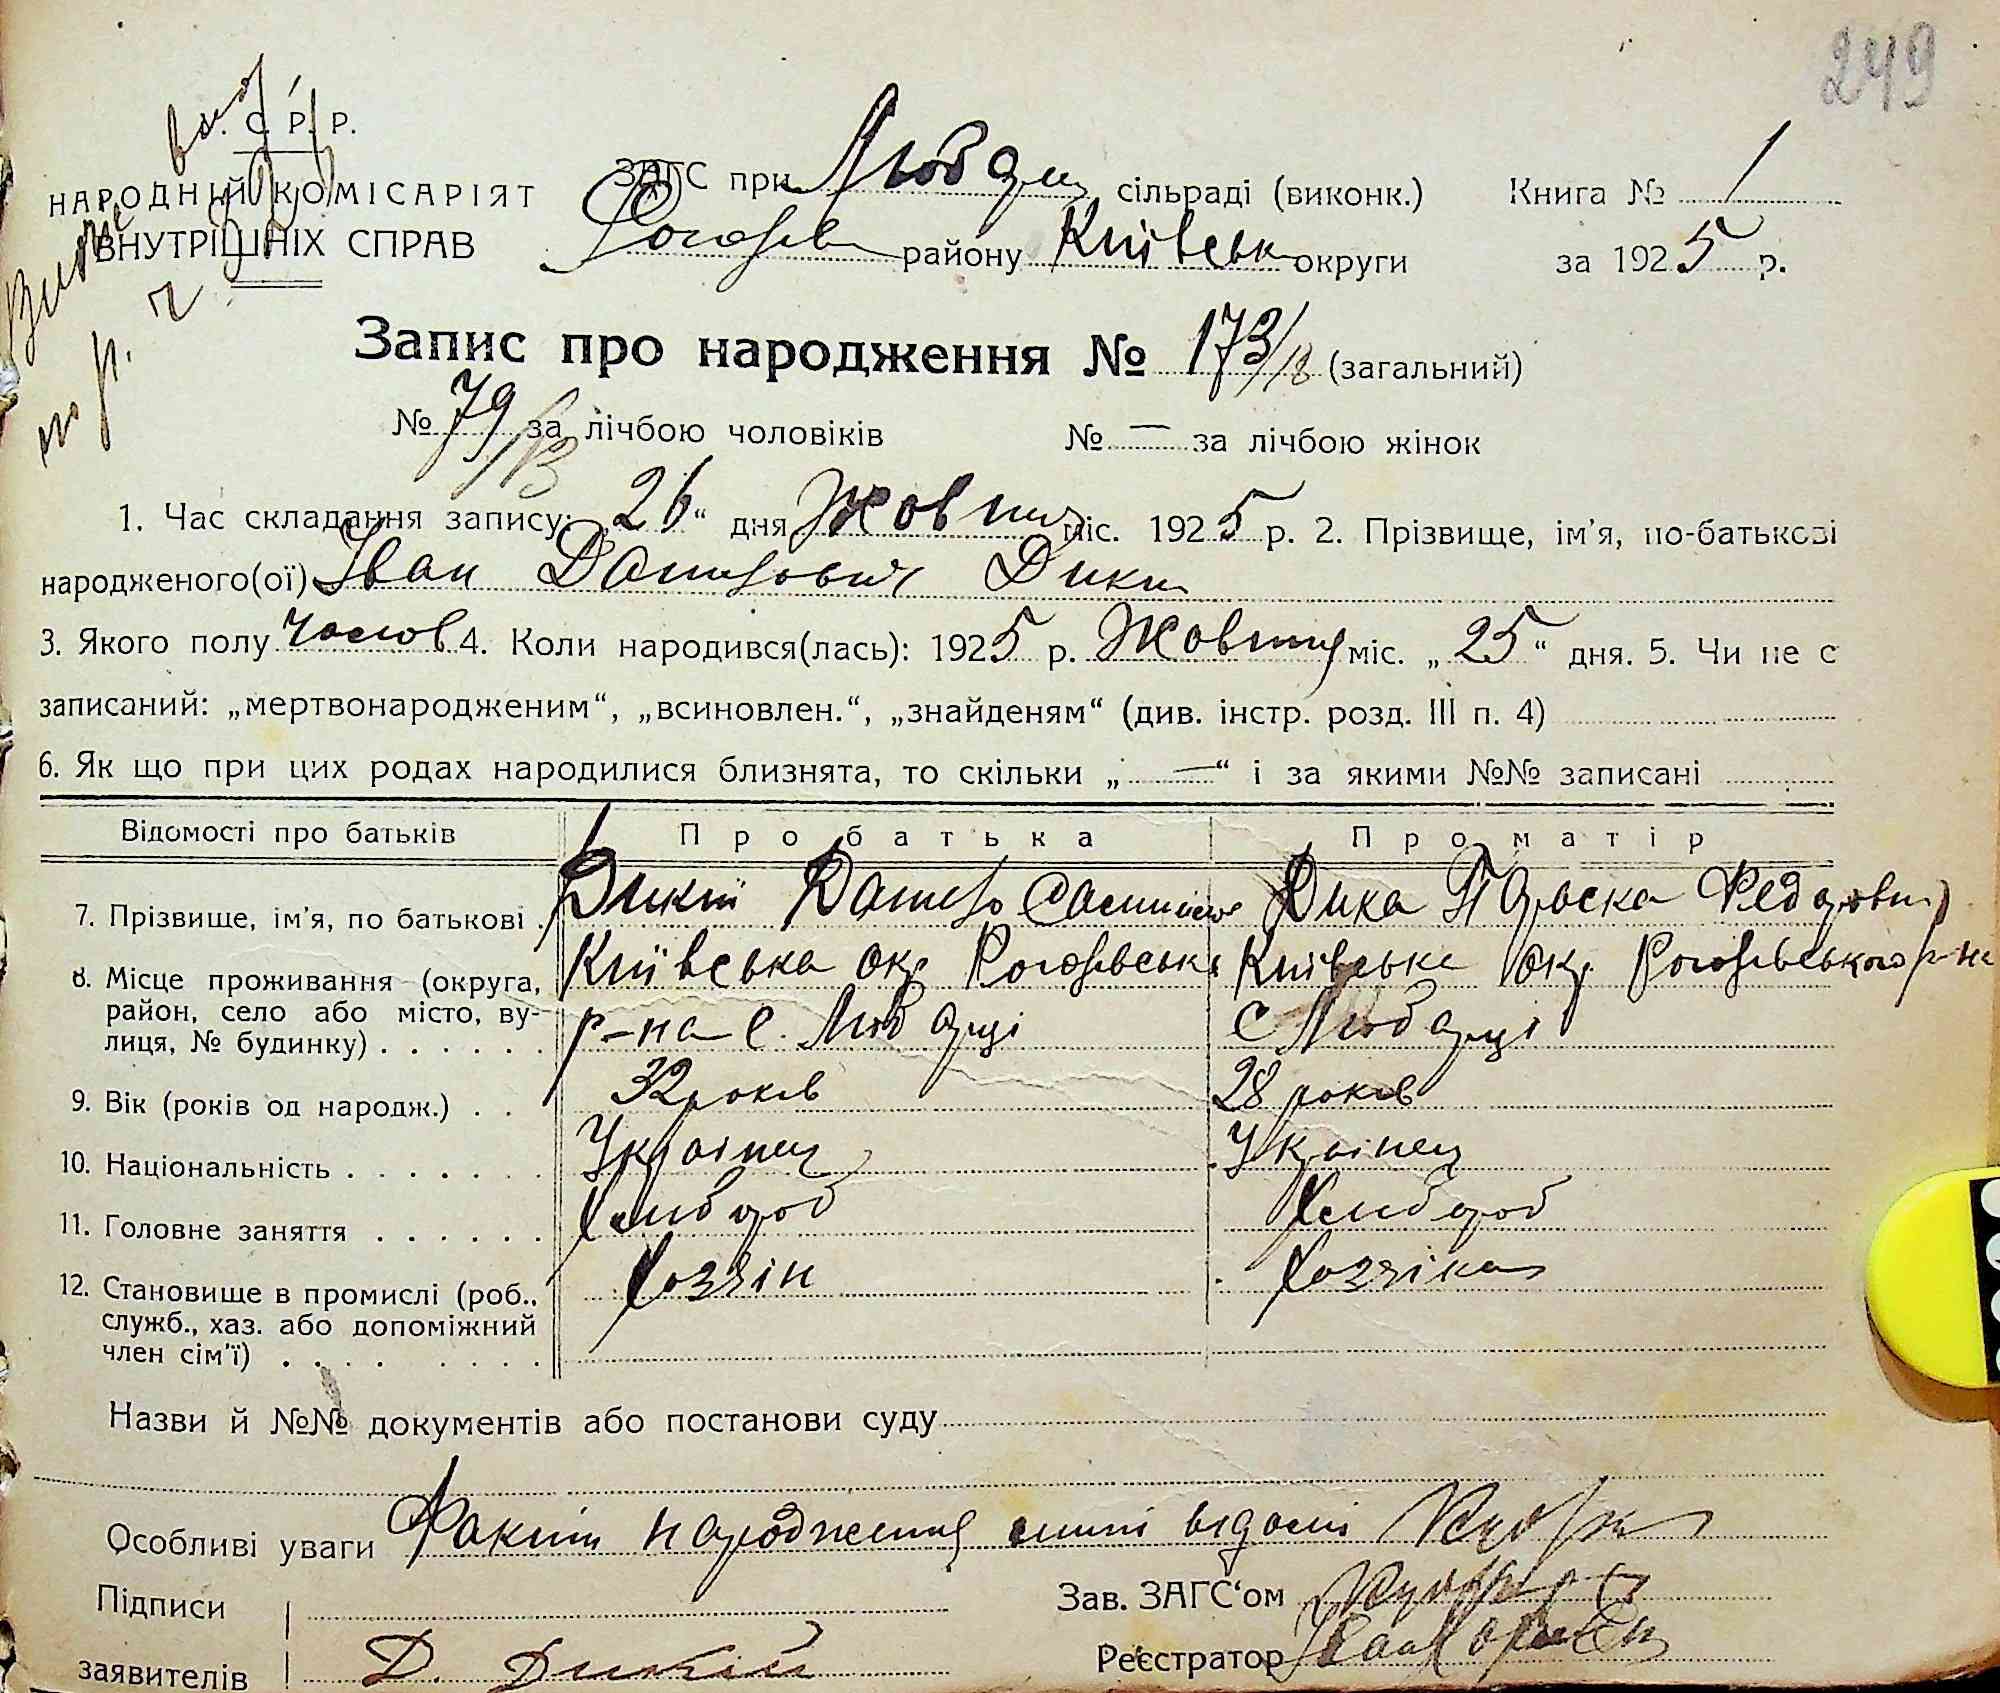 249
У. С. Р. Р.
НАРОДНИЙ КОМІСАРІЯТ
ВНУТРІШНІХ СПРАВ
ЗАГС при Любарц сільраді (виконк.) Книга № 1
Рогозів району Київськ округи за 1925 р.
Запис про народження № 173/18 (загальний)
№ 79/13 за лічбою чоловіків № — за лічбою жінок
1. Час складання запису: „26“ дня Жовтня міс. 1925 р. 2. Прізвище, ім’я, по-батькові
народженого(ої) Іван Данилович Дикий
3. Якого полу чолов 4. Коли народився(лась): 1925 р. Жовтня міс. „25“ дня. 5. Чи не є
записаний: „мертвонародженим“, „всиновлен.“, „знайденям“ (див. інстр. розд. III п. 4)
6. Як що при цих родах народилися близнята, то скільки „—“ і за якими №№ записані
Відомості про батьків Про батька Про матір
7. Прізвище, ім’я, по батькові Дикий Данило Дика Параска Федоровна
8. Місце проживання (округа, Київська окр Рогозівськ Київська окр. Рогозівського р-на
район, село або місто, ву- р-на с. Любарці с Любарці
лиця, № будинку)
9. Вік (років од народж.) 32 років 28 років
10. Національність Українец Українец
11. Головне заняття Хлибороб Хлибороб
12. Становище в промислі (роб., Хозяін Хозяіка
служб., хаз. або допоміжний
член сім’ї)
Назви й №№ документів або постанови суду
Особливі уваги Факт народження мині відомі
Підписи Зав. ЗАГС‘ом
заявителів Д. Дикій Реєстратор